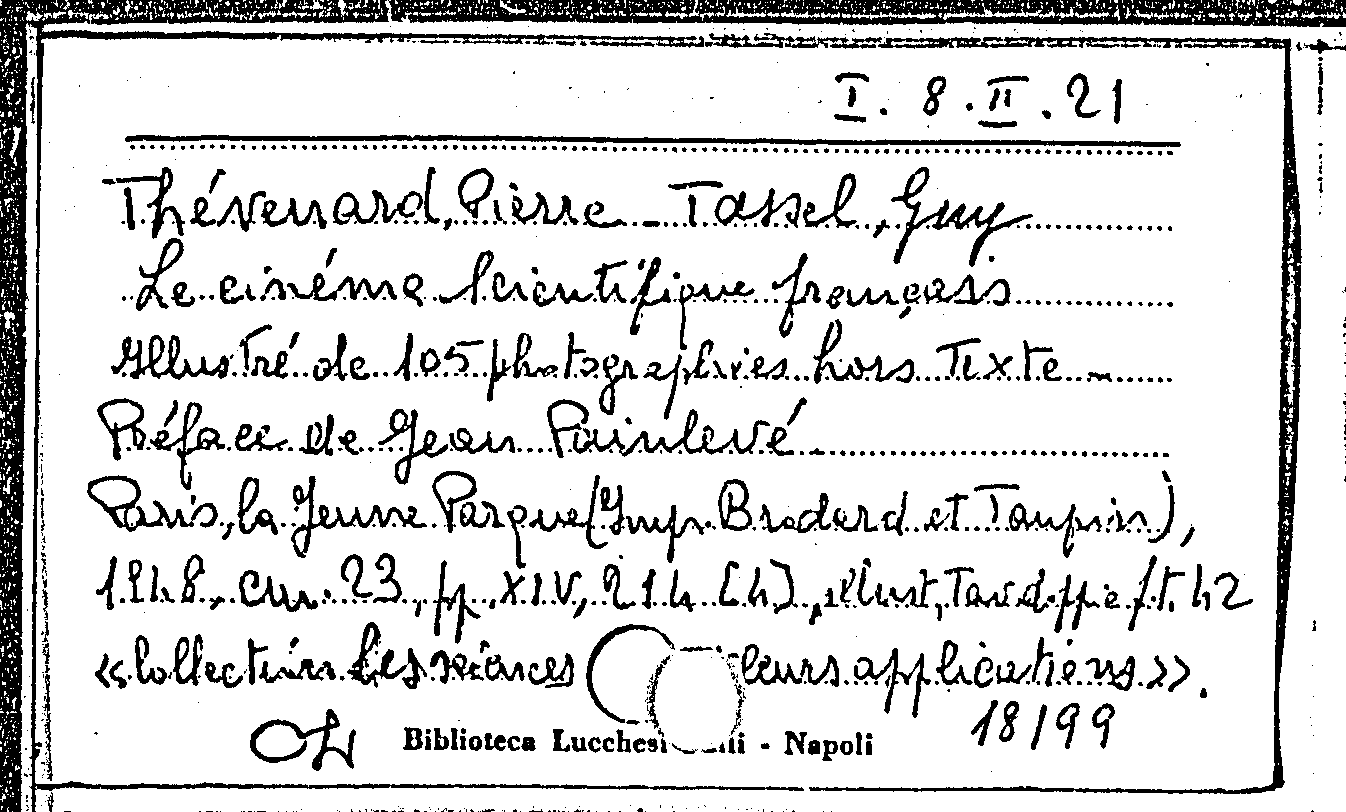 I. 8. II. 21
Thévenard, Pierre - Tassel, Guy
Le cinéma scientifique français
Illustré de 105 photographies hors texte -
Préface de Jean Painlevé
Paris, la Jeune Parque (Imp. Brodard et Taupin),
1948, cm. 23, pp. XIV, 214 [4], illust, Tav. d. ppe f. t. 42
«Collection Les sciences leurs applications».
18199
Biblioteca Lucchesi - Napoli